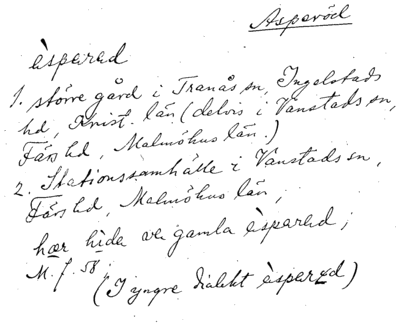 Asperöd
èsparad
1. större gård i Tranås sn, Ingelstads
hd, Krist. län (delvis i Vanstads sn,
Färs hd, Malmöhus län.)
2. Stationssamhälle i Vanstads sn,
Färs hd, Malmöhus län,
hær hida ve gamla èsparad;
M. f. 58.
(I yngre dialekt èsparɛd)